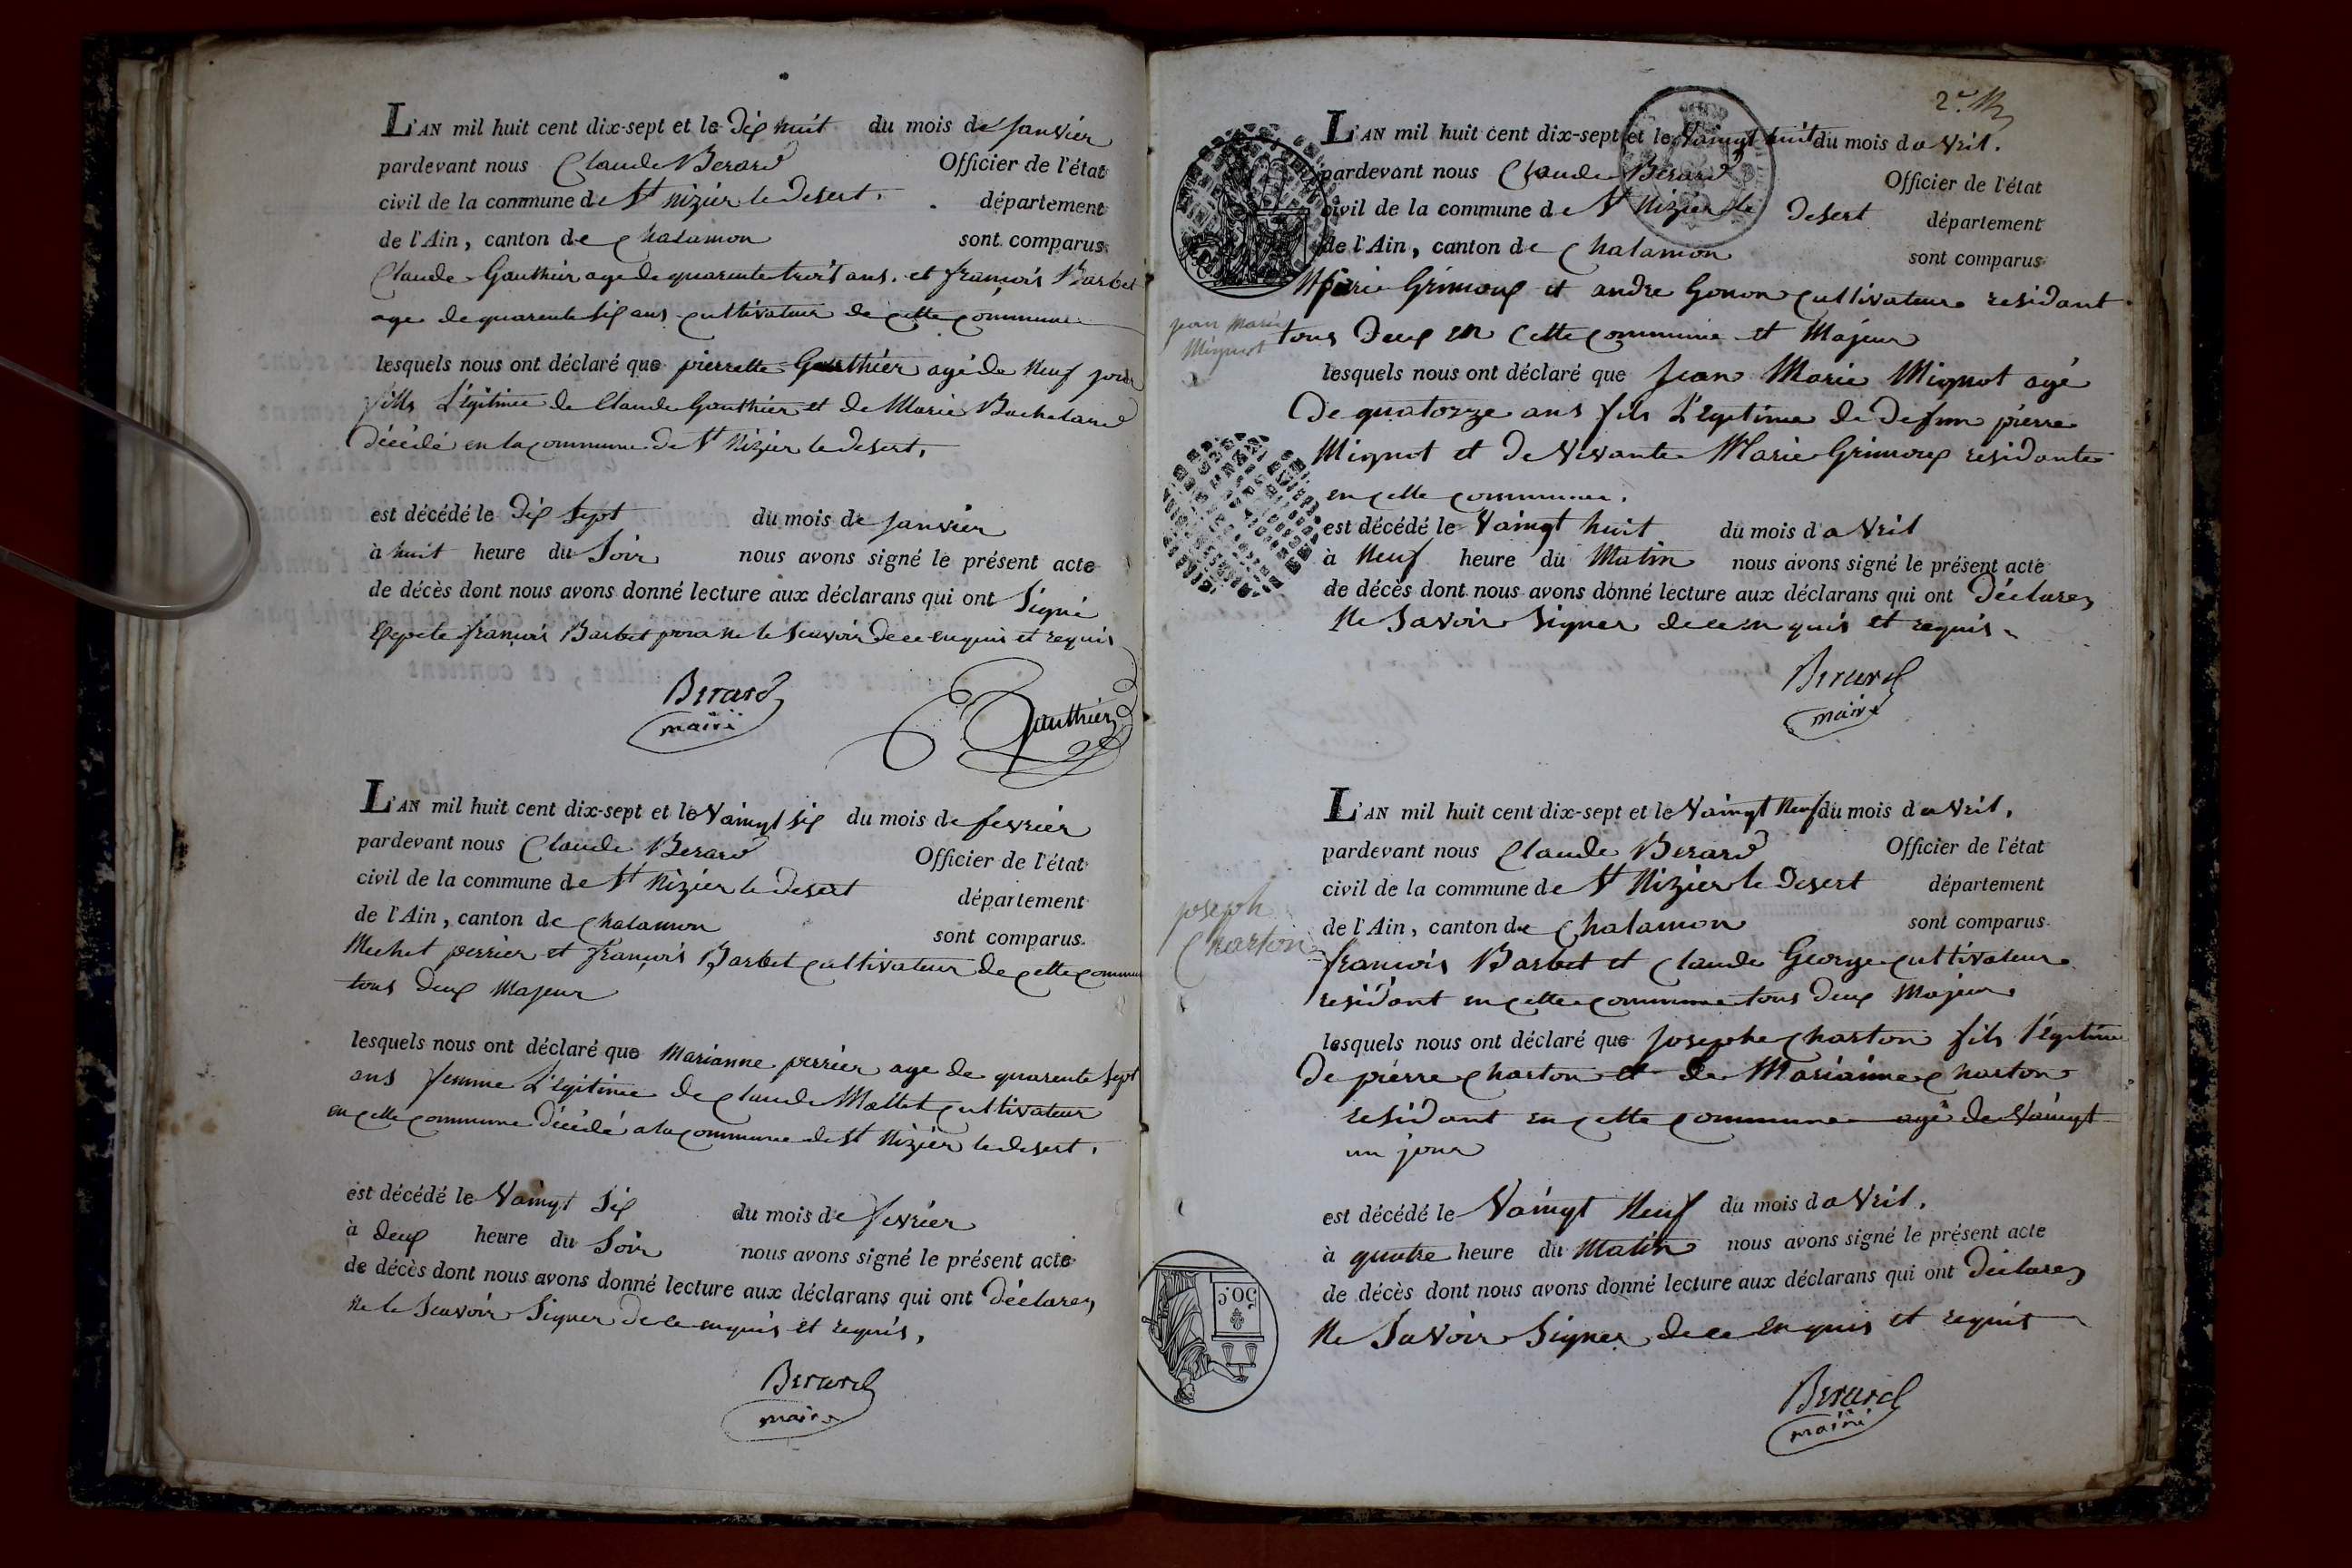 L'AN mil huit cent dix-sept et le dix huit du mois de janvier
pardevant nous Claude Berard Officier de l'état
civil de la commune de St Nizier le desert. département
de l'Ain, canton de Chalamon sont comparus
Claude Gauthier age de quarente trois ans. et françois Barbet
age de quarente six ans cultivateur de cette commune
lesquels nous ont déclaré que pierrette Gauthier agé de neuf jour
fille Légitime de Claude Gauthier et de Marie Bachelard
décédé en la commune de St Nizier le desert.
est décédé le dix sept du mois de janvier
à huit heure du Soir nous avons signé le présent acte
de décès dont nous avons donné lecture aux déclarans qui ont Signé
Excepte françois Barbet pour ne le scavoir de ce enquis et requis
Berard
maire
Gauthier
L'AN mil huit cent dix-sept et le Vaingt six du mois de fevrier
pardevant nous Claude Berard Officier de l'état
civil de la commune de St Nizier le desert département
de l'Ain, canton de Chalamon sont comparus.
Mechet perrier et françois Barbet cultivateur de cette commun
tous deux Majeur
lesquels nous ont déclaré que Marianne perrier age de quarente sept
ans femme Légitime de Claude Mallet cultivateur
en cette commune décédé a la commune de St Nizier le desert.
est décédé le Vaingt Six du mois de fevrier
à deux heure du Soir nous avons signé le présent acte
de décès dont nous avons donné lecture aux déclarans qui ont déclarez
ne le Scavoir Signer de ce enquis et requis.
Berard
maire
2e
L'AN mil huit cent dix-sept et le Vaingt huit du mois d'avril.
pardevant nous Claude Berard Officier de l'état
civil de la commune de St Nizier le desert département
de l'Ain, canton de Chalamon sont comparus
Grimoux et andre Gonon cultivateur residant
jean marie
Mignot
tous deux en cette commune et Majeur
lesquels nous ont déclaré que Jean Marie Mignot agé
De quatorze ans fils Légitime de defun pierre
Mignot et de Vivante Marie Grimoux residante
en cette commune.
est décédé le Vaingt huit du mois d'avril
à Neuf heure du Matin nous avons signé le présent acte
de décès dont nous avons donné lecture aux déclarans qui ont Déclarez
Ne Savoir Signer de ce enquis et requis
Berard
maire
L'AN mil huit cent dix-sept et le Vaingt Neuf du mois d'avril.
pardevant nous Claude Berard Officier de l'état
civil de la commune de St Nizier le desert département
joseph
Charton
de l'Ain, canton de Chalamon sont comparus
françois Barbet et Claude George cultivateur
residant en cette commune tous deux Majeur
lesquels nous ont déclaré que Josephe Charton fils légitime
De pierre Charton et de Marianne Charton
residant en cette commune agé de Vaingt
un jour
est décédé le Vaingt Neuf du mois d'avril.
à quatre heure du Matin nous avons signé le présent acte
de décès dont nous avons donné lecture aux déclarans qui ont déclarez
Ne Savoir Signer de ce enquis et requis
50.c
Berard
maire